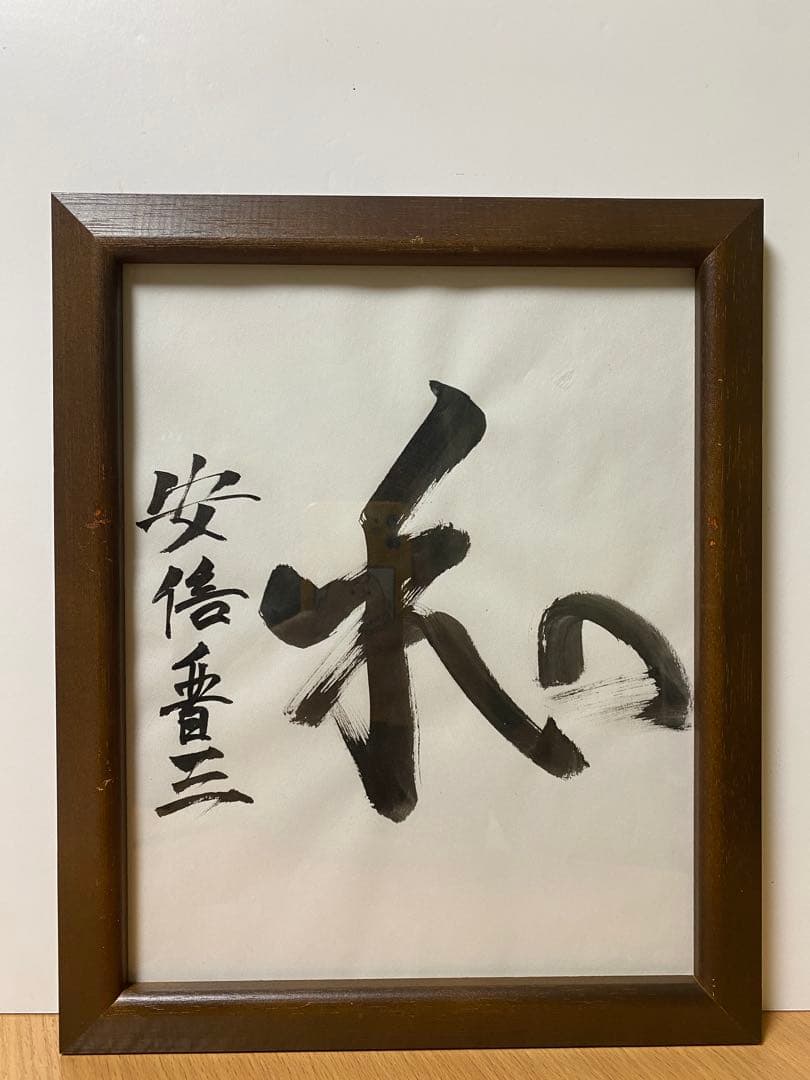 和
安倍晋三